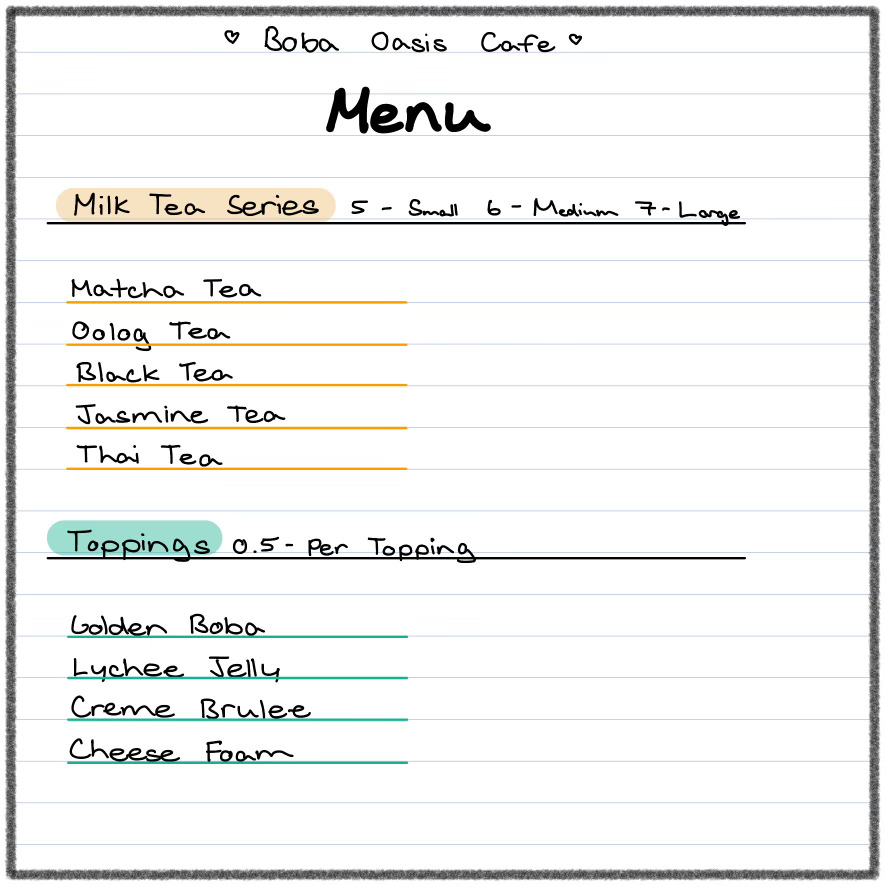 ♡ Boba Oasis Cafe ♡
Menu
Milk Tea Series 5 - Small 6 - Medium 7 - Large
Matcha Tea
Oolog Tea
Black Tea
Jasmine Tea
Thai Tea
Toppings 0.5 - Per Topping
Golden Boba
Lychee Jelly
Creme Brulee
Cheese Foam